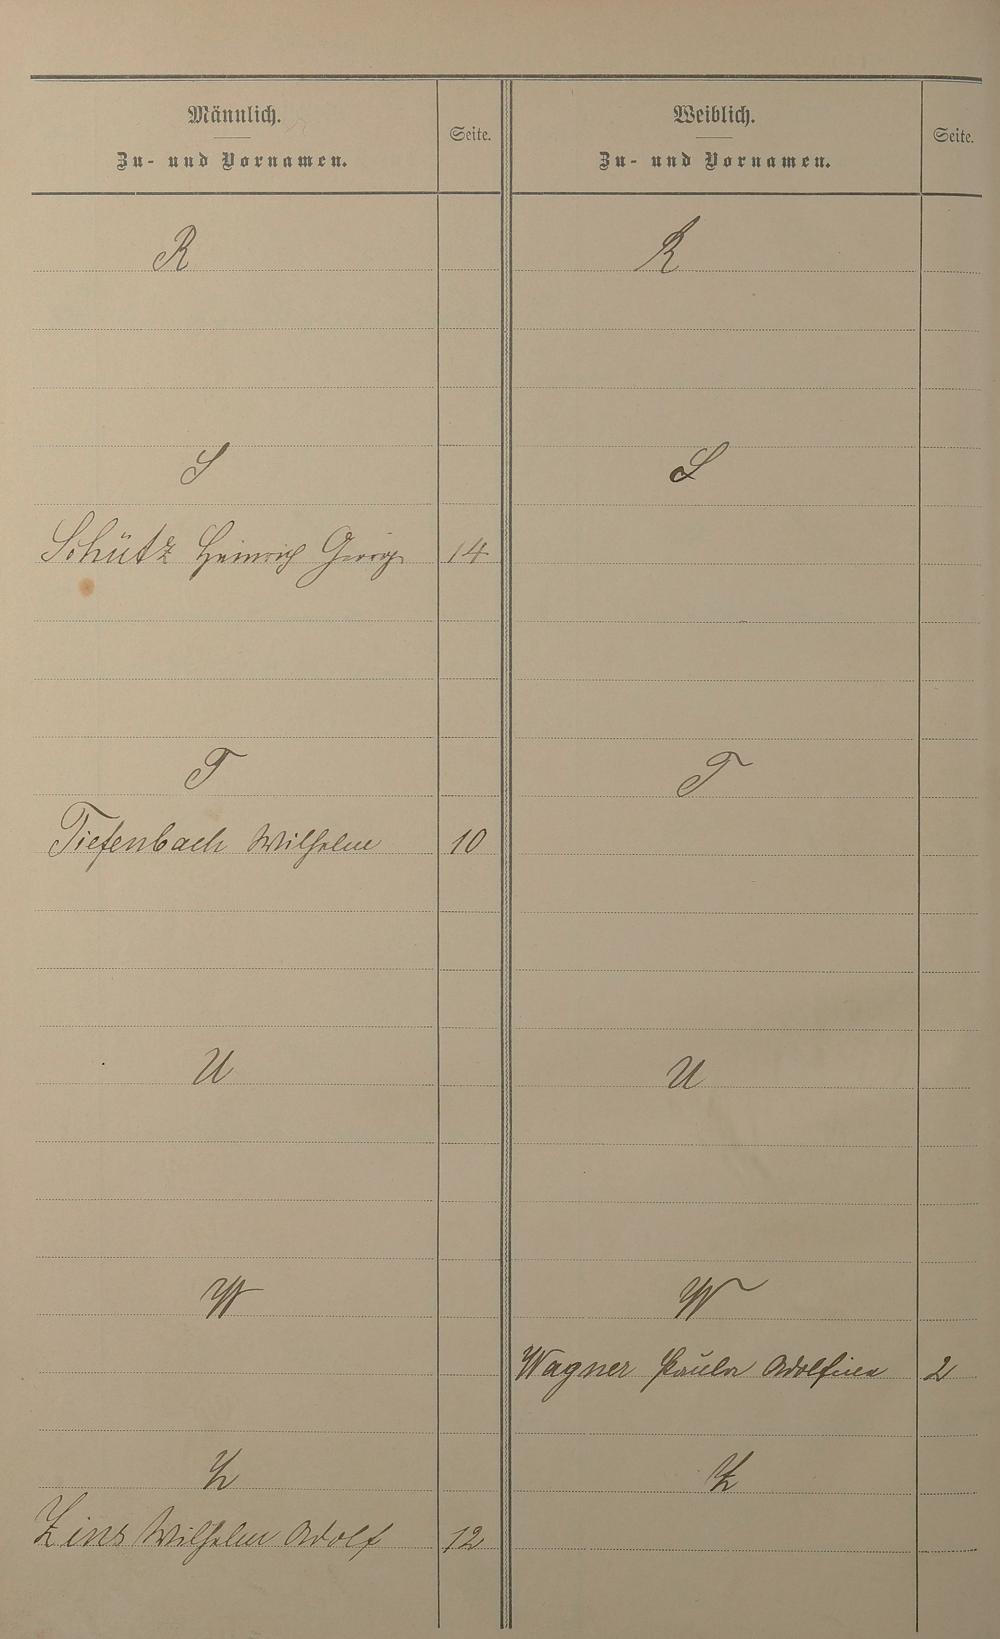 Männlich.
Zu- und Vornamen.
Seite.
Weiblich.
Zu- und Vornamen.
Seite.
R R
S S
Schütz Heinrich Georg 14
T T
Tiefenbach Wilhelm 10
U U
W W
Wagner Paula Adolfine 2
Z Z
Zins Wilhelm Adolf 12